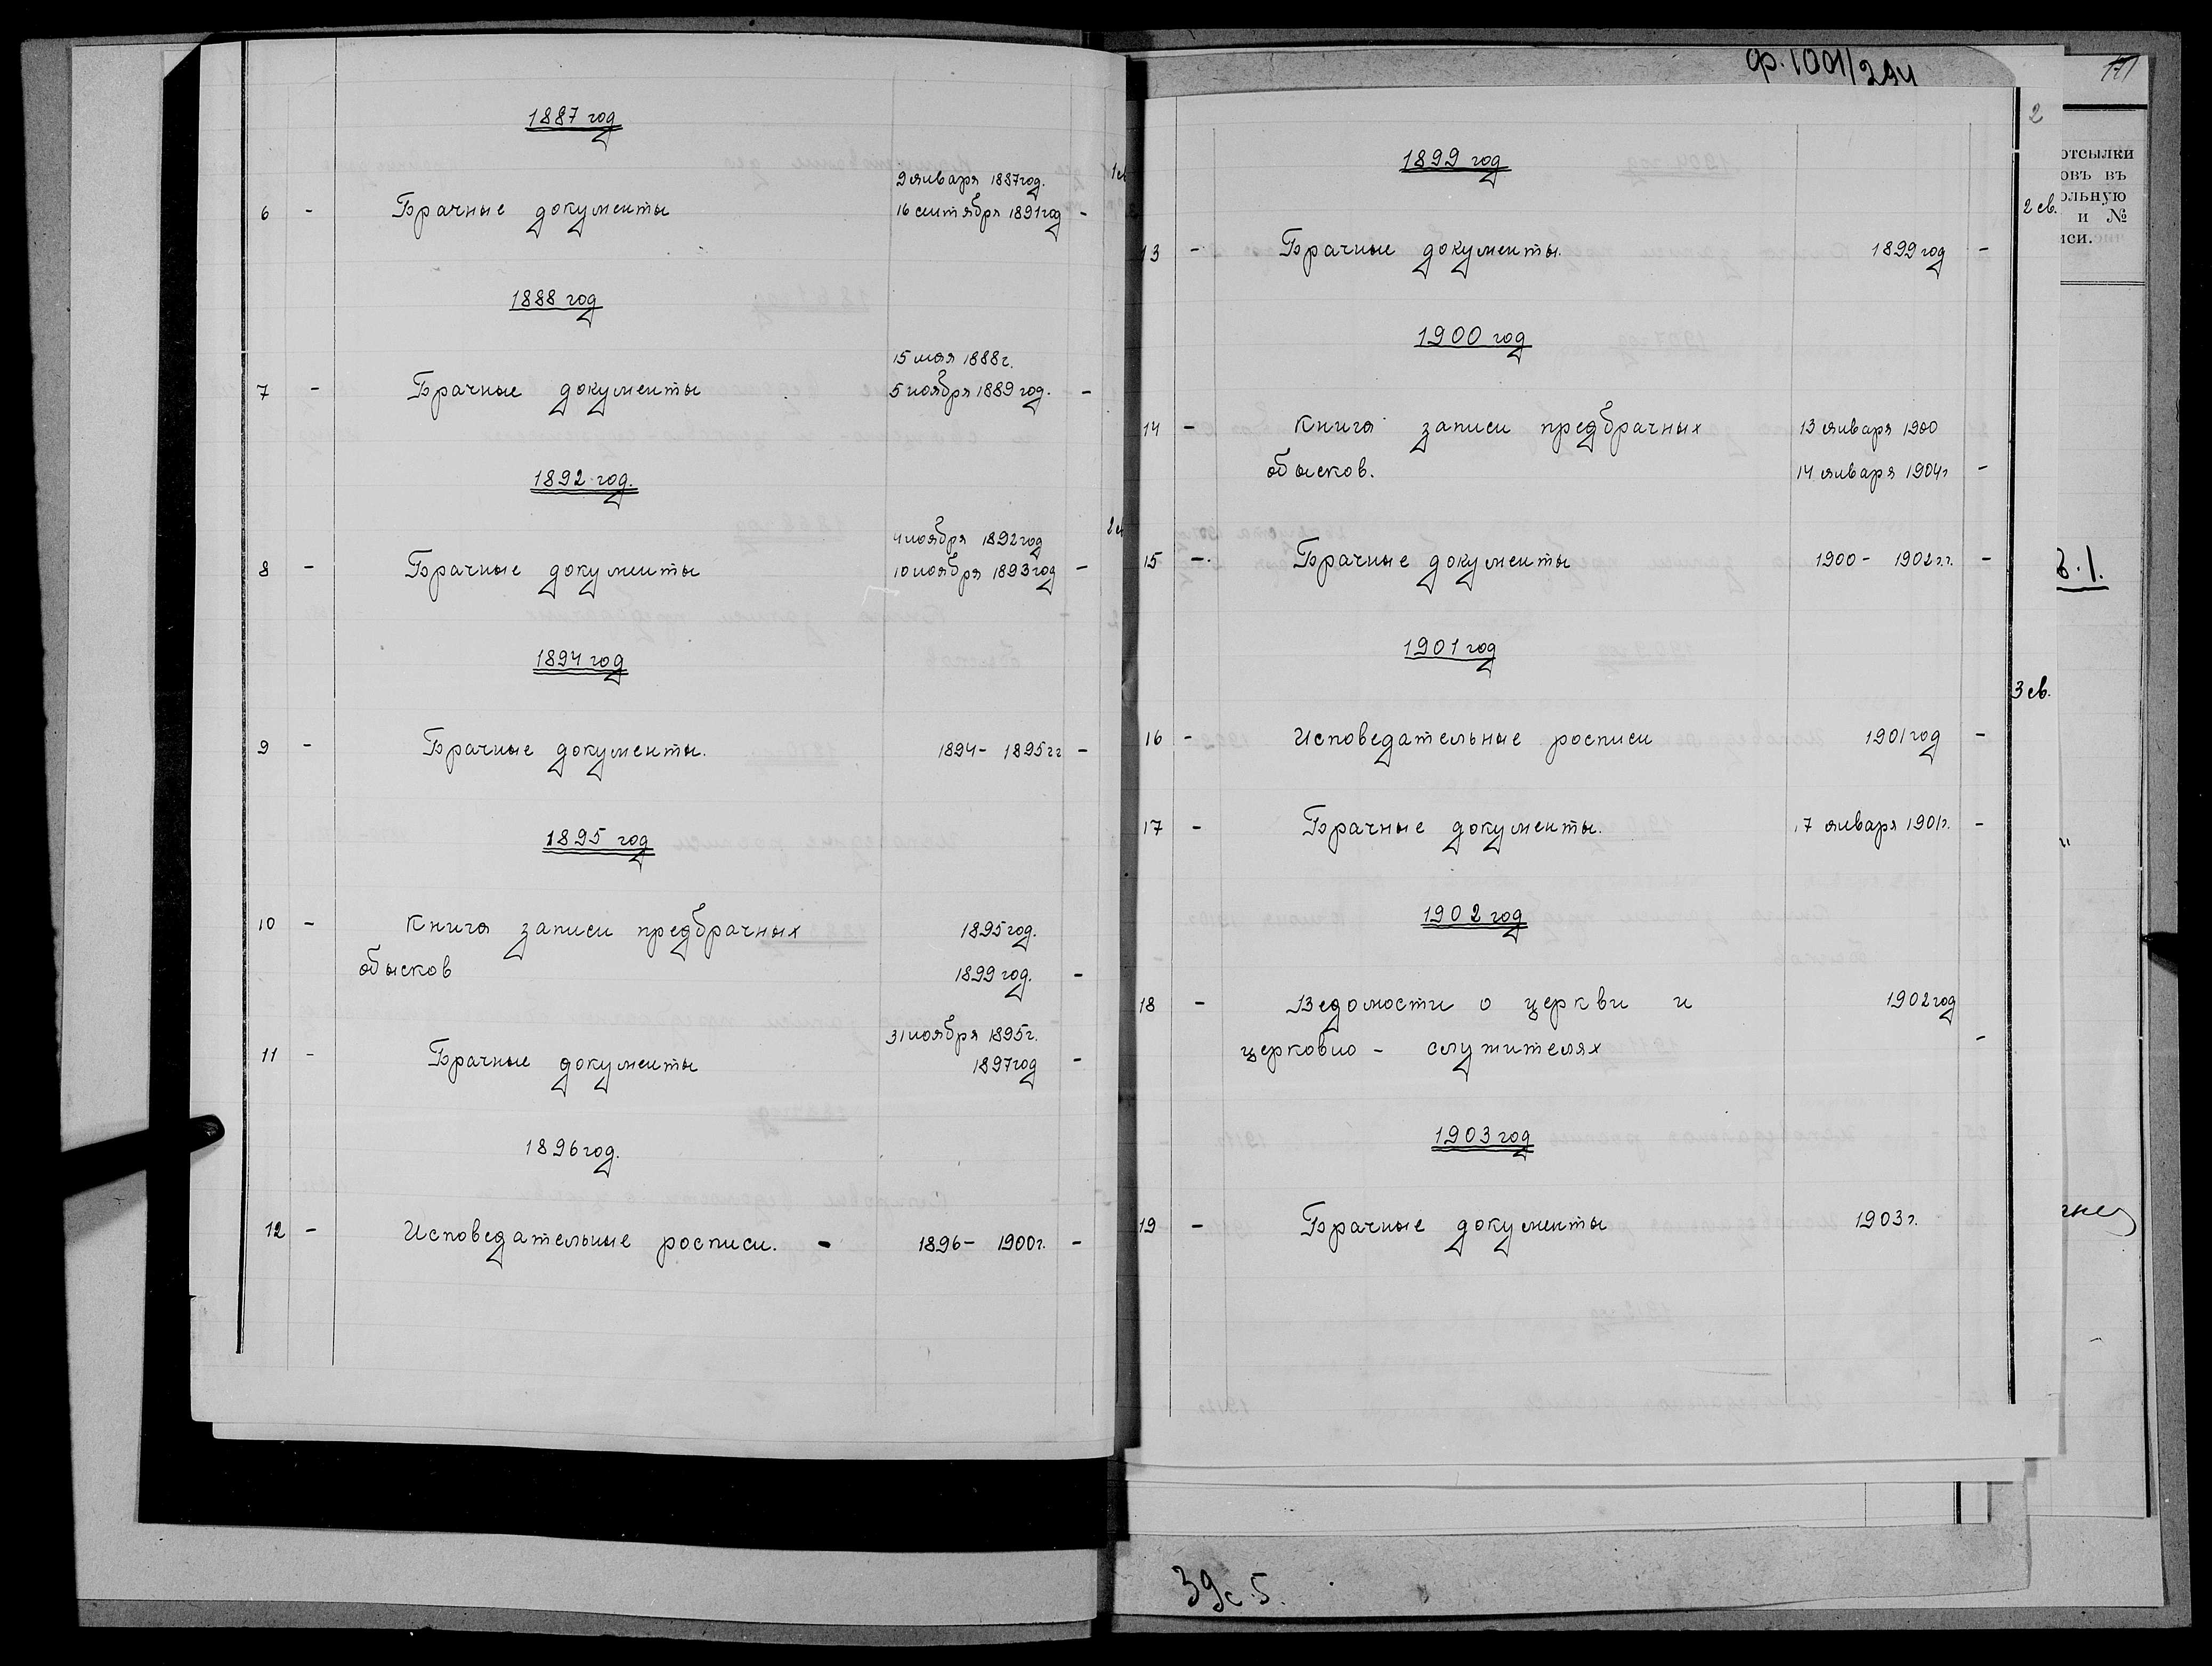 1887 год
9 января 1887 год.
6 - Брачные документы 16 сентября 1891 год -
1888 год
15 мая 1888 г.
7 - Брачные документы 5 ноября 1889 год. -
1892 год.
4 ноября 1892 год
8 - Брачные документы 10 ноября 1893 год -
1894 год
9 - Брачные документы. 1894 - 1895 гг -
1895 год
10 - Книга записи предбрачных 1895 год.
обысков 1899 год. -
31 ноября 1895 г.
11 - Брачные документы 1897 год -
1896 год.
12 - Исповедательные росписи. - 1896 - 1900 г. -
ф. 1001/294
2
1899 год
2 св.
13 - Брачные документы. 1899 год -
1900 год
14 - Книга записи предбрачных 13 января 1900
обысков. 14 января 1904 г -
15 - Брачные документы 1900 - 1902 г.г. -
1901 год
3 св.
16 - Исповедательные росписи 1901 год -
17 - Брачные документы. 17 января 1901 г. -
1902 год
18 - Ведомости о церкви и 1902 год
церковно - служителях -
1903 год
19 - Брачные документы 1903 г.
отсылки
овъ въ
ольную
и №
иси.
39с.5.